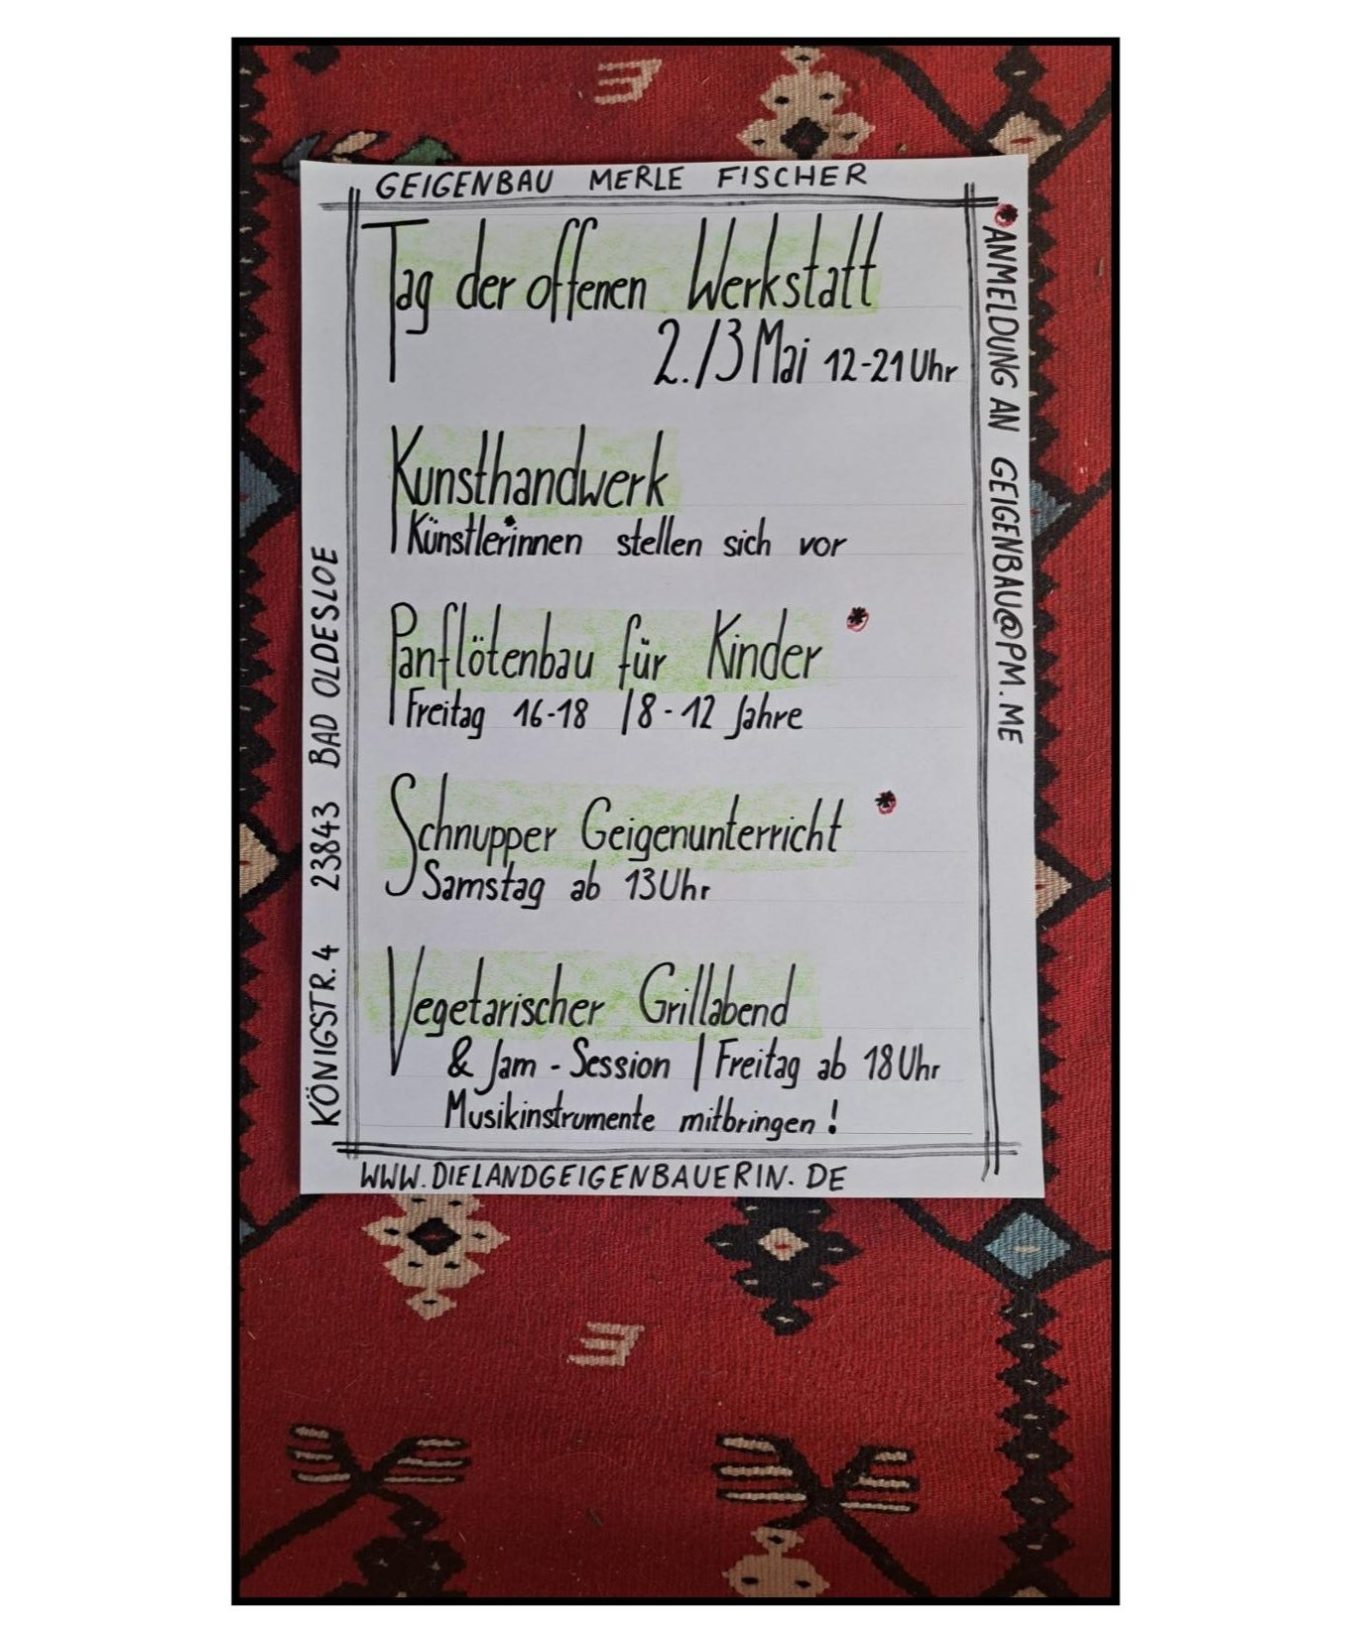 GEIGENBAU MERLE FISCHER
Tag der offenen Werkstatt
2./3 Mai 12-21 Uhr
Kunsthandwerk
Künstlerinnen stellen sich vor
Panflötenbau für Kinder *
Freitag 16-18 / 8-12 Jahre
Schnupper Geigenunterricht *
Samstag ab 13 Uhr
Vegetarischer Grillabend
& Jam-Session | Freitag ab 18 Uhr
Musikinstrumente mitbringen!
WWW.DIELANDGEIGENBAUERIN.DE
KÖNIGSTR. 4 23843 BAD OLDESLOE
*ANMELDUNG AN GEIGENBAU@PM.ME